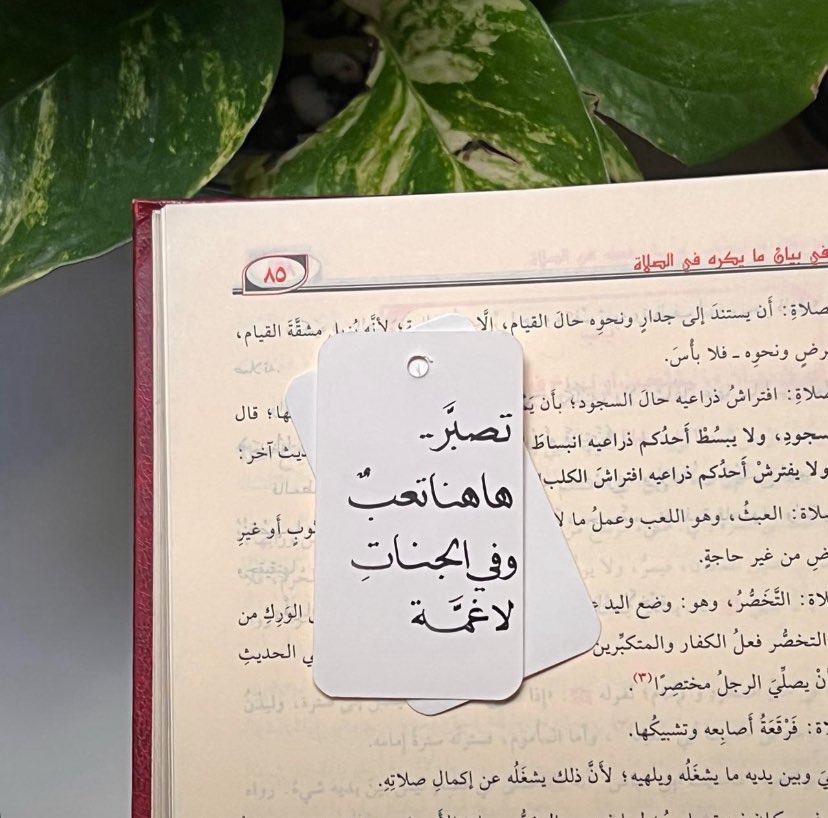 في بيان ما يكره في الصلاة
٨٥
صلاةِ: أن يستندَ إلى جدارٍ ونحوِه حالَ القيامِ، إلَّا لأنَّه يُزيل مشقَّةَ القيام،
ونحوِه ـ فلا بأسَ.
صلاةِ: افتراشُ ذراعيه حالَ السجود؛ بأن قال
سجودِ، ولا يبسُطْ أحدُكم ذراعيه انبساطَ آخر:
ولا يفترشْ أحدُكم ذراعيه افتراشَ الكلب
العبثُ، وهو اللعب وعملُ ما أو غيرِ
من غير حاجةٍ.
التَّخَصُّرُ، وهو: وضع اليد الوَرِكِ من
التخصُّر فعلُ الكفار والمتكبِّرين الحديثِ
أنْ يصلِّيَ الرجلُ مختصِرًا(٣).
فَرْقَعَةُ أصابِعه وتشبيكُها.
وبين يديه ما يشغَلُه ويلهيه؛ لأنَّ ذلك يشغَلُه عن إكمالِ صلاتِهِ.
تصبَّر..
هاهنا تعبٌ
وفي الجناتِ
لا غمَّة